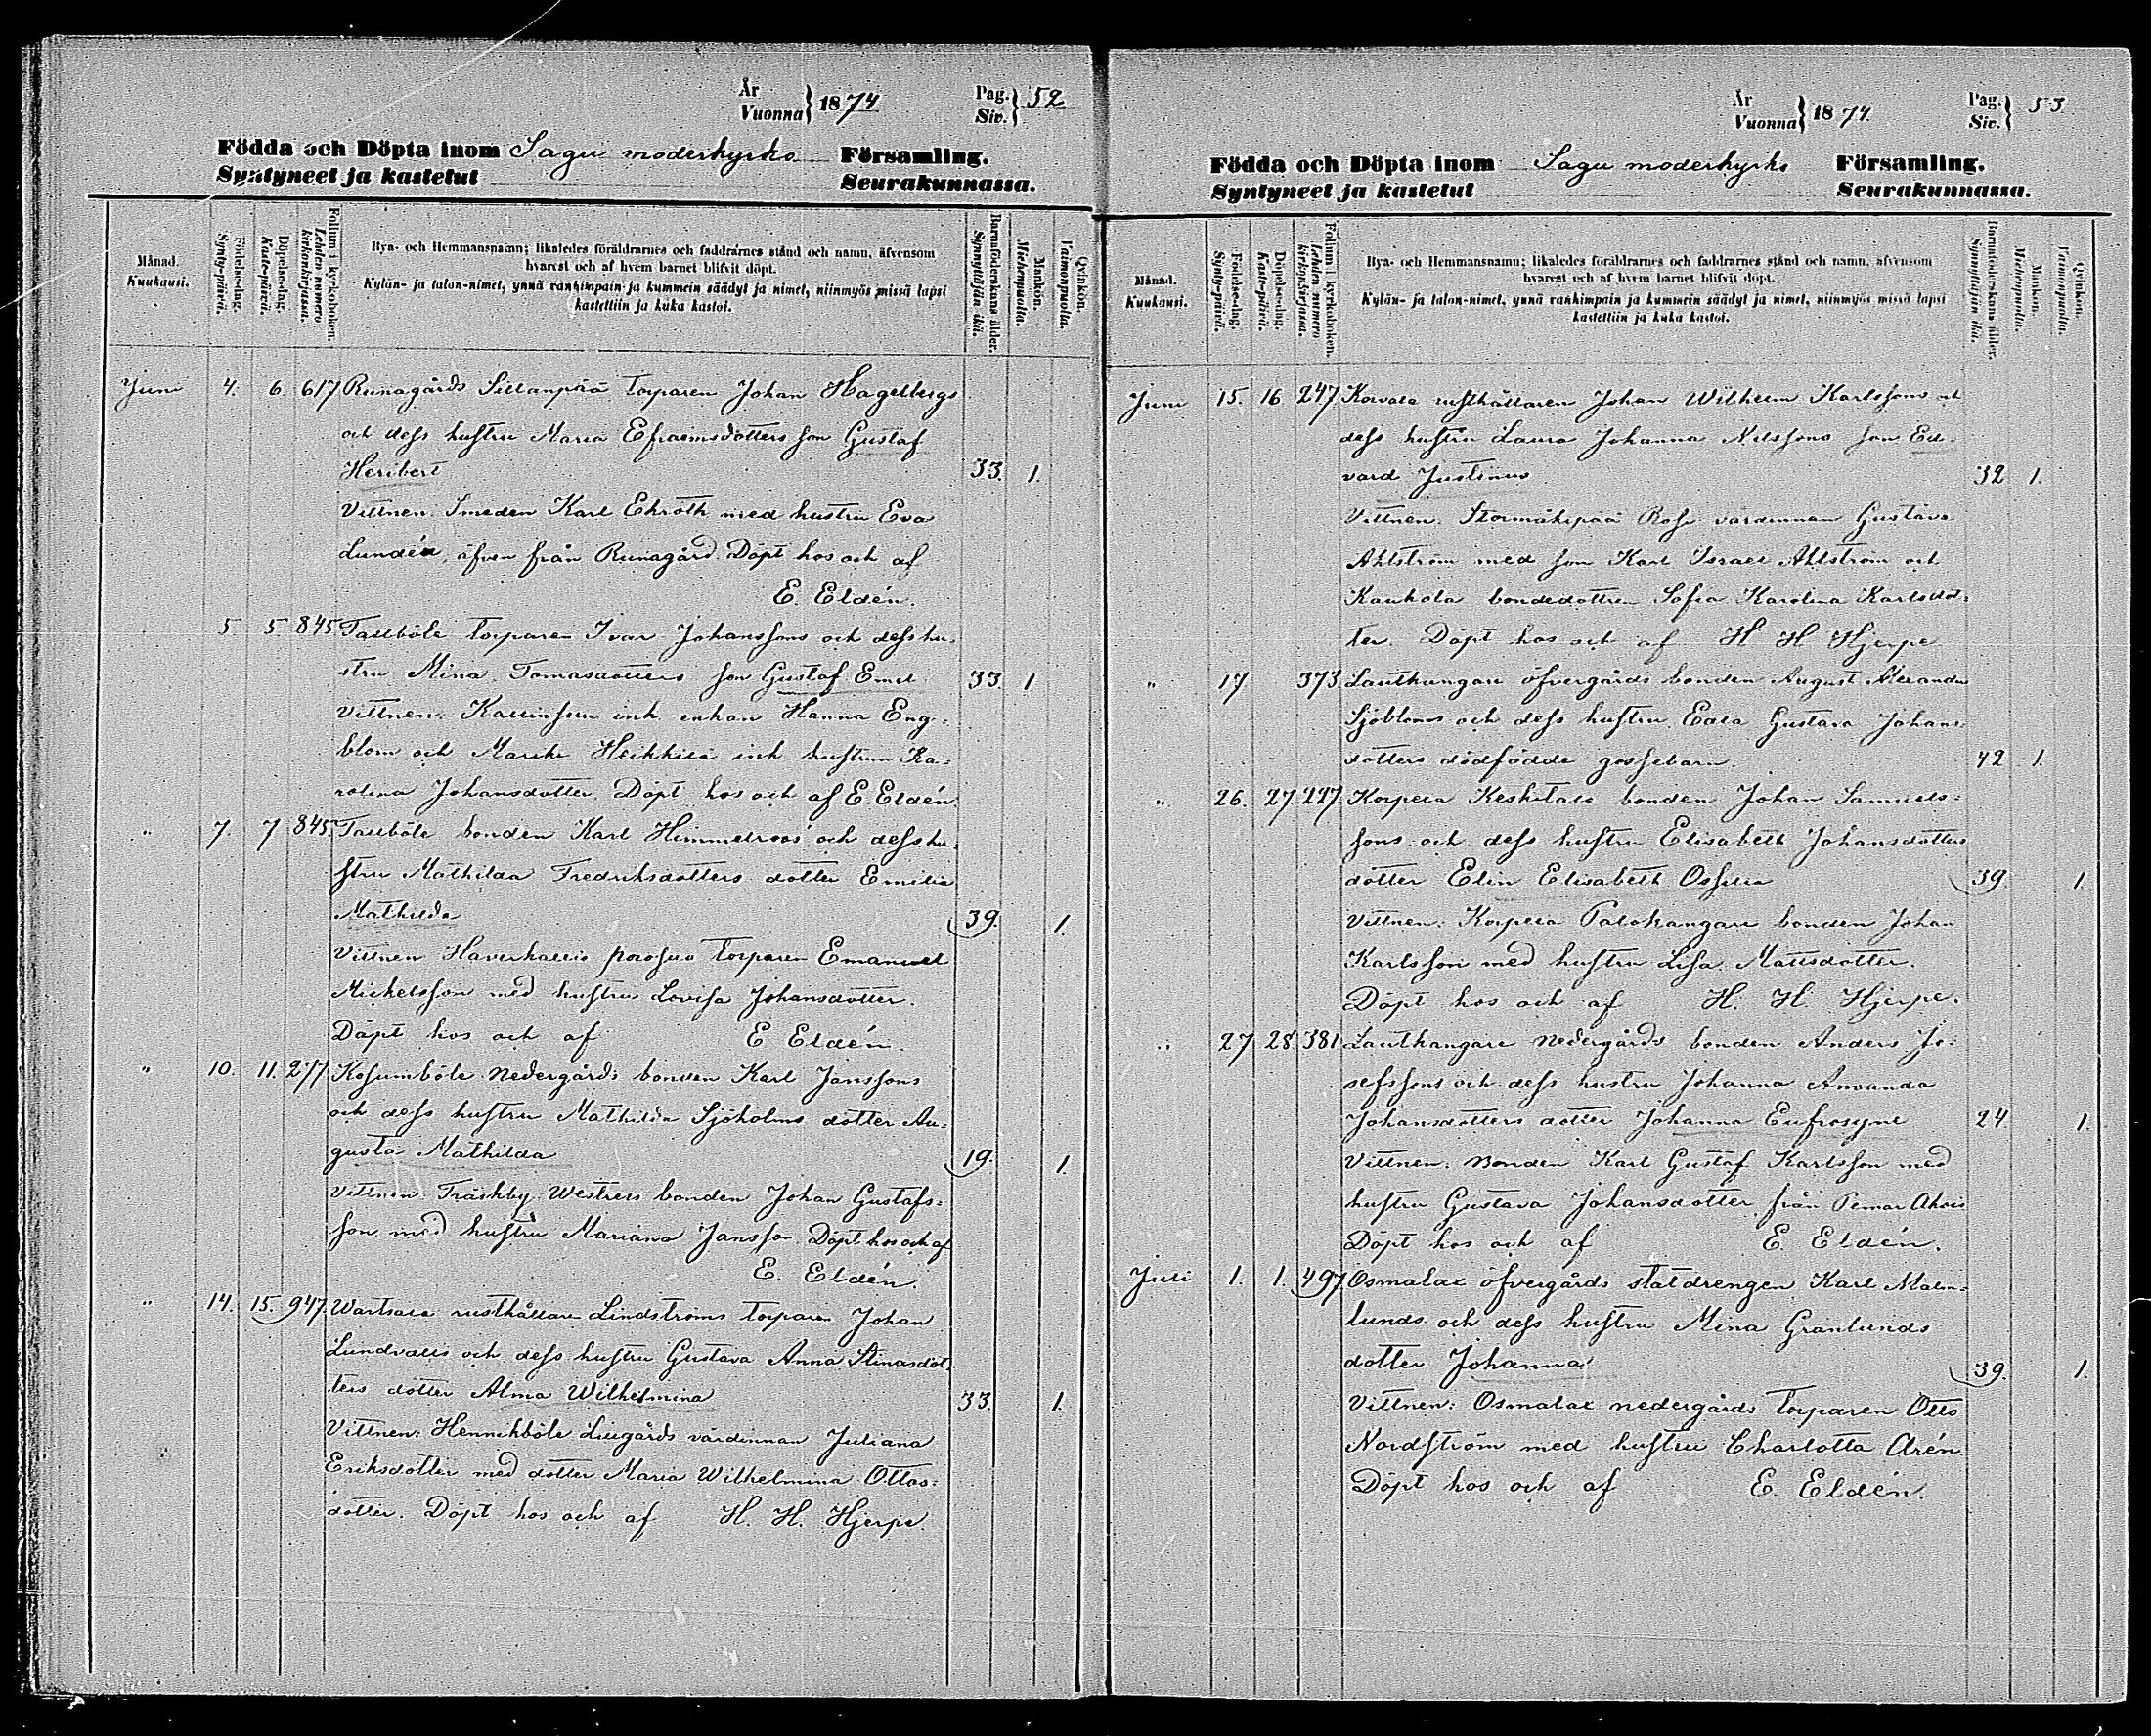 År
Vuonna 1874
Pag.
Siv. 52
Födda och Döpta inom Sagu moderkyrko Församling.
Syntyneet ja kastetut Seurakunnassa.
Månad.
Kuukausi.
Födelse-dag.
Synty-päivä.
Döpelse-dag.
Kaste-päivä.
Folium i kyrkoboken.
Lehden numero kirkonkirjassa.
Bya- och Hemmansnamn; likaledes föräldrarnes och faddrarnes stånd och namn, äfvensom
hvarest och af hvem barnet blifvit döpt.
Kylän- ja talon-nimet, ynnä vanhimpain ja kummein säädyt ja nimet, niinmyös missä lapsi
kastettiin ja kuka kastoi.
Barnaföderskans ålder.
Synnyttäjän ikä.
Mankön.
Miehenpuolta.
Qvinkön.
Vaimonpuolta.
Juni 4. 6. 617 Runagårds Sillanpää torparen Johan Hagelbergs
och dess hustru Maria Efraimsdotters son Gustaf
Heribert 33. 1.
Vittnen: Smeden Karl Ekroth med hustru Eva
Lundén, äfven från Runagård. Döpt hos och af
E. Eldén.
5 5 845 Tallböle torparen Ivar Johanssons och dess hu-
stru Mina Tomasdotters son Gustaf Emil 33. 1
Vittnen: inh. enkan Hanna Eng-
blom och Heikkilä inh. hustrun Ka-
rolina Johansdotter. Döpt hos och af E Eldén
" 7. 7 845 Tallböle bonden Karl Himmelroos och dess hu-
stru Mathilda Fredriksdotters dotter Emilia
Mathilda 39. 1.
Vittnen Haverkallis torparen Emanuel
Mickelsson med hustru Lovisa Johansdotter.
Döpt hos och af E Eldén.
" 10. 11. 277 Kosumböle Nedergårds bonden Karl Janssons
och dess hustru Mathilda Sjöholms dotter Au-
gusta Mathilda 19. 1.
Vittnen: Träskby Westers bonden Johan Gustafs-
son med hustru Mariana Jansson. Döpt hos och af
E. Eldén
" 14. 15. 947. Wartsala rusthållare Lindströms torparen Johan
Lundvalls och dess hustru Gustava Anna Stinasdot-
ters dotter Alma Wilhelmina 33. 1.
Vittnen: Hennikböle Lillgårds värdinnan Juliana
Eriksdotter med dotter Maria Wilhelmina Ottos-
dotter. Döpt hos och af H. H. Hjerpe.
År
Vuonna 1874
Pag.
Siv. 53
Födda och Döpta inom Sagu moderkyrko Församling.
Syntyneet ja kastetut Seurakunnassa.
Månad.
Kuukausi.
Födelse-dag.
Synty-päivä.
Döpelse-dag.
Kaste-päivä.
Folium i kyrkoboken.
Lehden numero kirkonkirjassa.
Bya- och Hemmansnamn; likaledes föräldrarnes och faddrarnes stånd och namn, äfvensom
hvarest och af hvem barnet blifvit döpt.
Kylän- ja talon-nimet, ynnä vanhimpain ja kummein säädyt ja nimet, niinmyös missä lapsi
kastettiin ja kuka kastoi.
Barnaföderskans ålder.
Synnyttäjän ikä.
Mankön.
Miehenpuolta.
Qvinkön.
Vaimonpuolta.
Juni 15. 16 247 Koivala rusthållaren Johan Wilhelm Karlssons och
dess hustru Laura Johanna Nilssons son Ed-
vard Justinus 32 1.
Vittnen: Stormälipää Ross värdinnan Gustava
Ahlström med son Karl Israel Ahlström och
Kaukola bondedottren Sofia Karolina Karlsdot-
ter. Döpt hos och af H H Hjerpe
" 17 373 Lautkangare öfvergårds bonden August Alexander
Sjöbloms och dess hustru Edla Gustava Johans-
dotters dödfödde gossebarn. 42 1.
" 26. 27 227 Korpela Keskitalo bonden Johan Samuels-
sons och dess hustru Elisabeth Johansdotters
dotter Elin Elisabeth Ossilia 39. 1.
Vittnen: Korpela Palokangare bonden Johan
Karlsson med hustru Lisa Mattsdotter.
Döpt hos och af H. H. Hjerpe.
" 27 28 381 Lautkangare Nedergårds bonden Anders Jo-
sefssons och dess hustru Johanna Amanda
Johansdotters dotter Johanna Eufrosyne 24 1.
Vittnen: Bonden Karl Gustaf Karlsson med
hustru Gustava Johansdotter från Pemar
Döpt hos och af E. Eldén.
Juli 1. 1. 497 Osmalax öfvergårds statdrengen Karl Malm-
lunds och dess hustru Mina Granlunds
dotter Johanna 39. 1.
Vittnen: Osmalax nedergårds torparen Otto
Nordström med hustru Charlotta Arén.
Döpt hos och af E. Eldén.